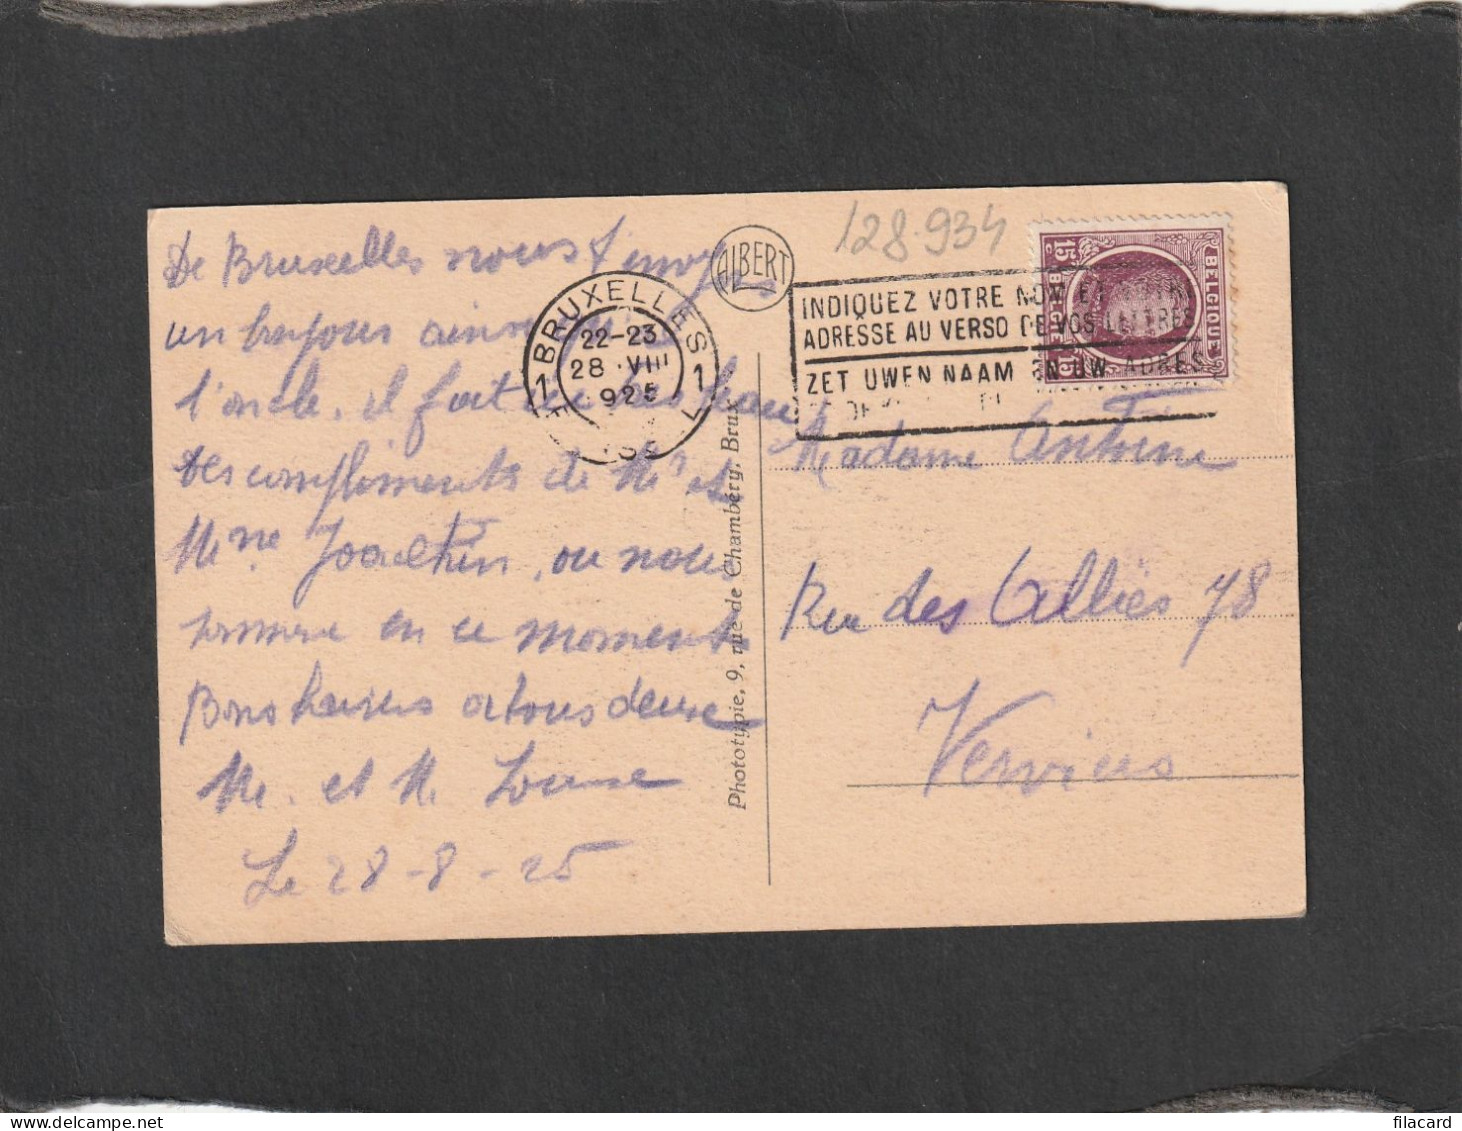 De Bruxelles nous t'envoyons
un bonjour ainsi qu'à
l'oncle, il fait
Des compliments de Mr et
Mme Joachim, ou nous
sommes en ce moment
Bons baisers à tous deux
M. et M. Louise
Le 28-8-25
ALBERT
128.934
BRUXELLES
1 1
22-23
28 VIII
925
INDIQUEZ VOTRE NOM ET VOTRE
ADRESSE AU VERSO DE VOS LETTRES
ZET UWEN NAAM EN UW ADRES
15c BELGIQUE
BELGIË 15c
Phototypie, 9, rue de Chambéry, Brux.
Madame Antoine
Rue des Alliés 78
Verviers
filacard